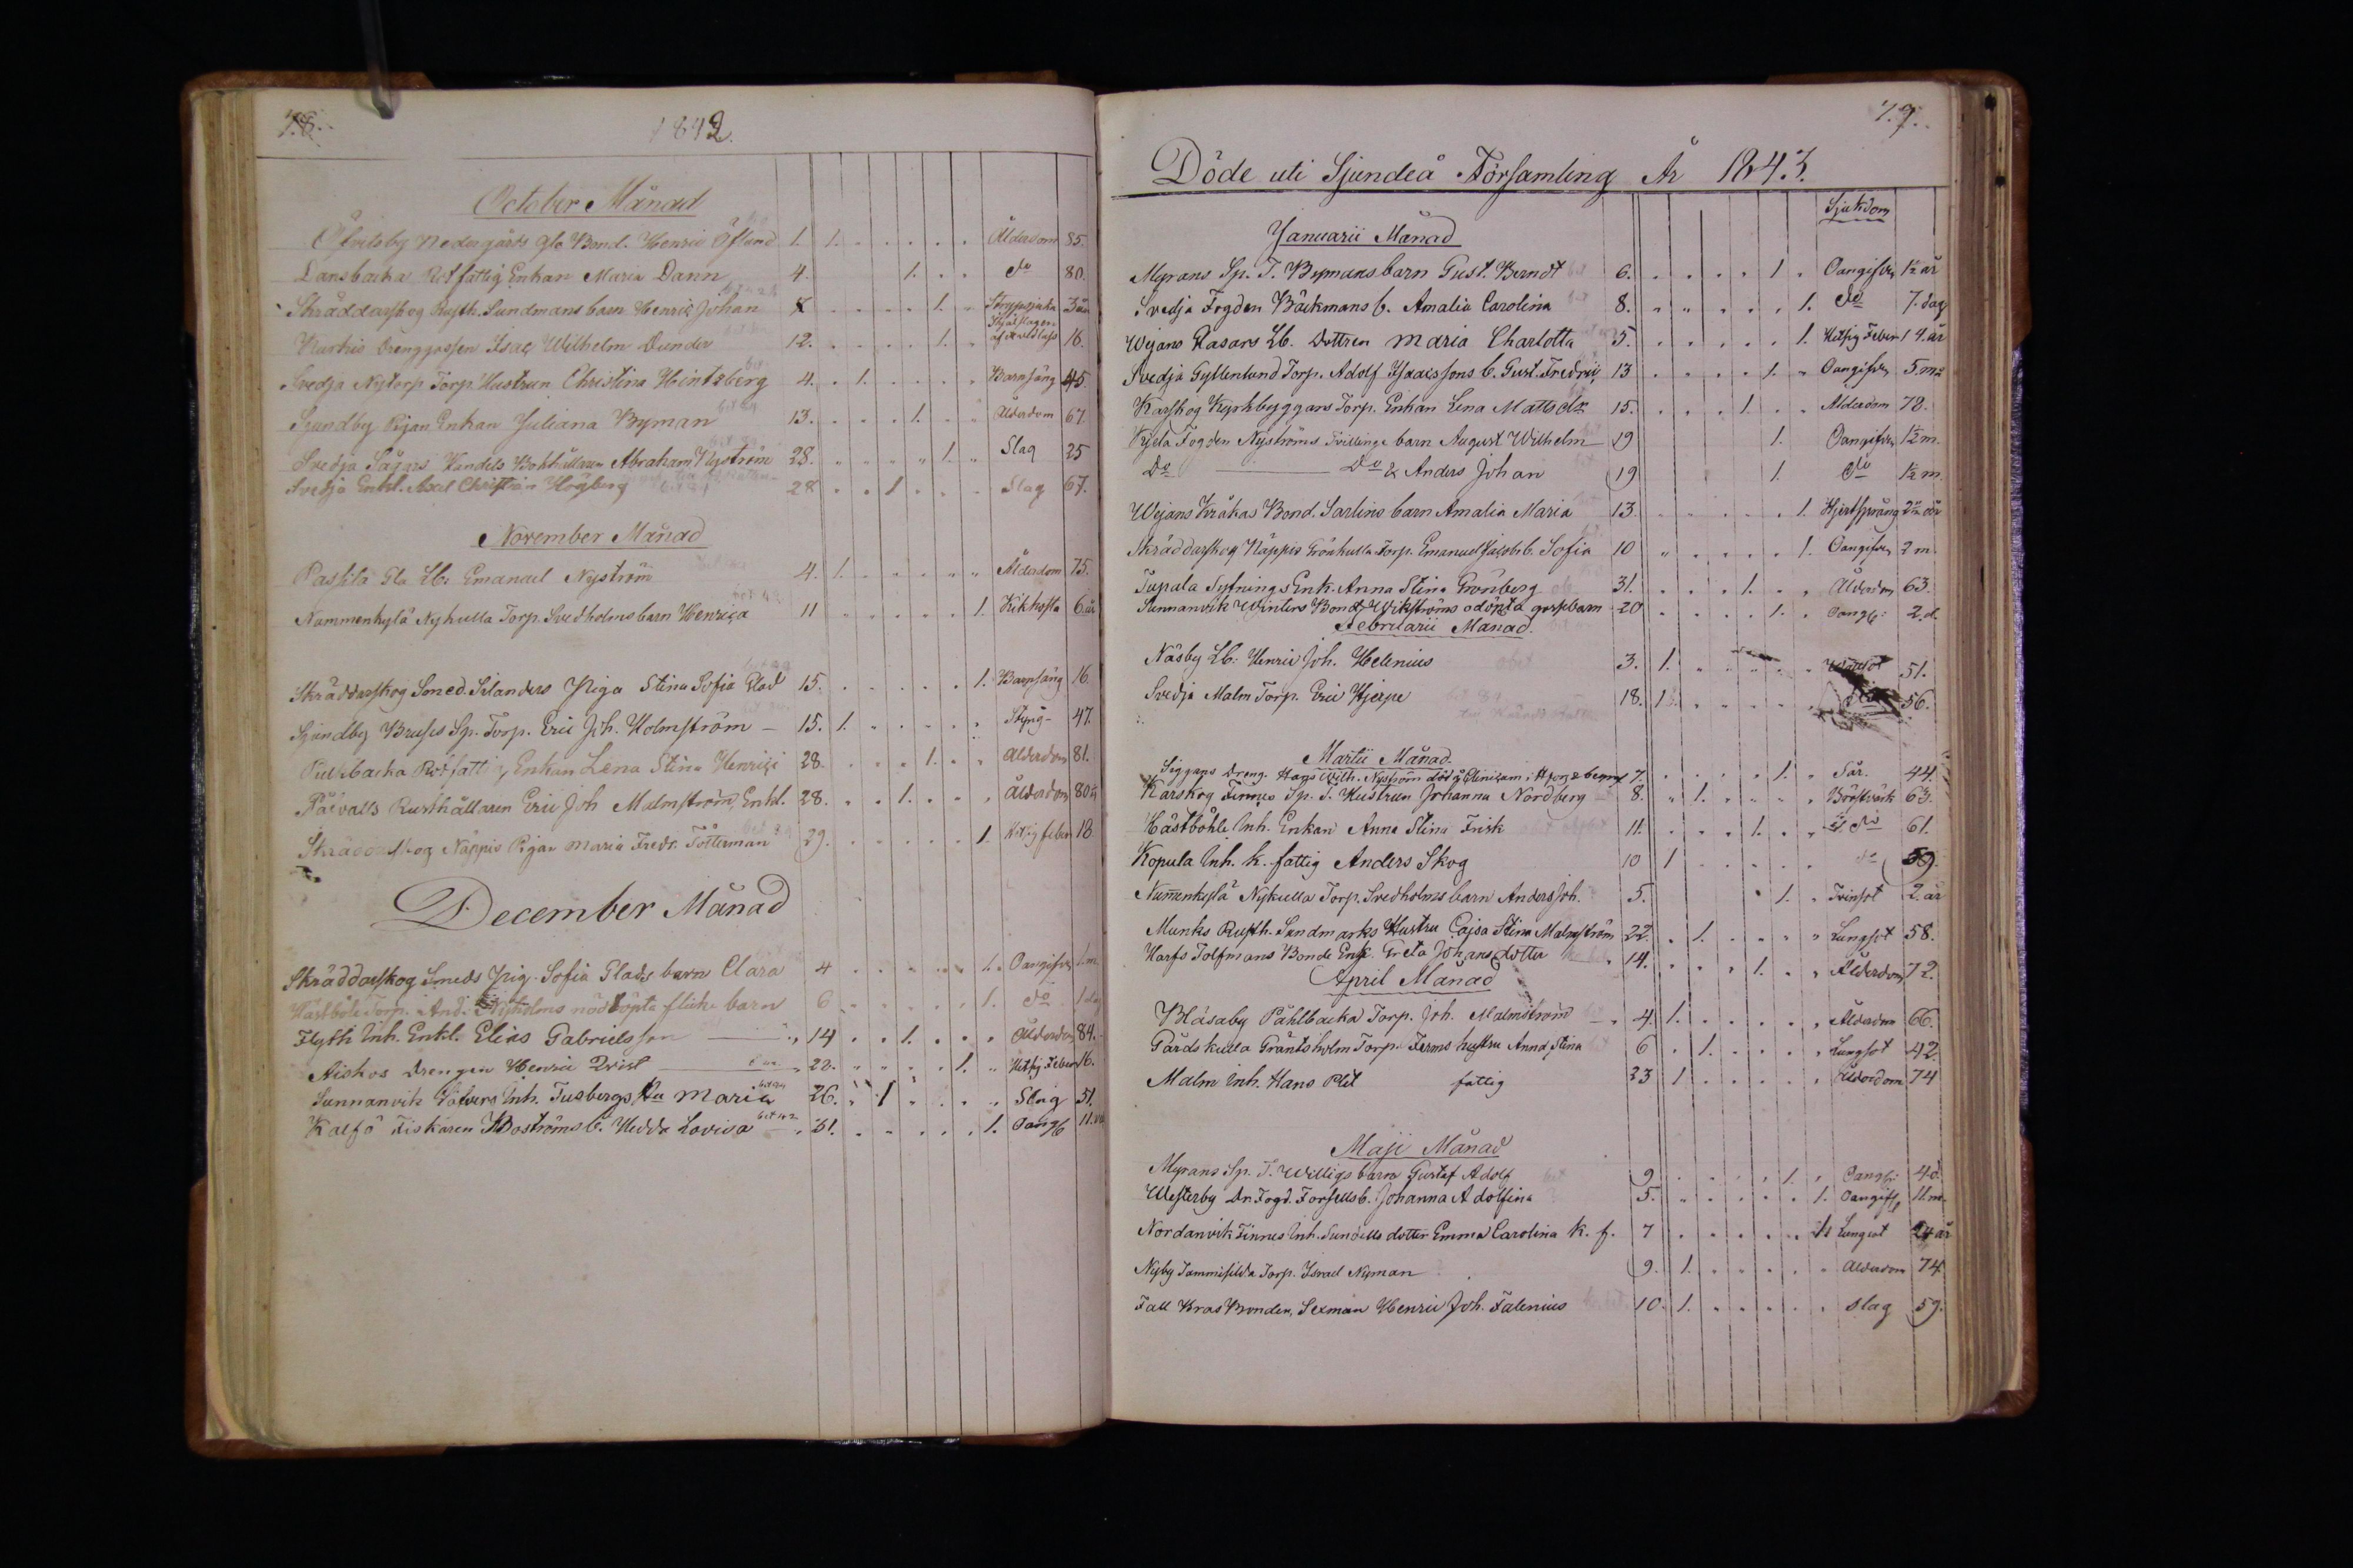 78.
1842.
October Månad
Nedergårds Gle Bond. Henric Öflund 1. 1. Ålderdom 85.
Dansbacka Rotfattig Enkan Maria Dann 4. 1. do 80.
Skräddarskog Rusth. Sundmans barn Henric Johan 8 1. Strypsjuka 3 år
Kurkis Drenggossen Isac Wilhelm Dunder 12. 1. Ihjälslagen af 16.
Svedja Nytorp Torp. Hustrun Christina Hintzberg 4. 1. Barnsäng 45
Sjundby Pigan Enkan Juliana Bryman 13. 1. Ålderdom 67.
Svedja Sågars Handels Bokhållaren Abraham Nyström 28. 1. Slag 25
Svedja Enkl. Axel Christian Högberg 28 1 Slag 67.
November Månad
Paskila Gla Lb: Emanuel Nyström 4. 1. Ålderdom 75.
Nummenkylä Nykulla Torp. Svedholms barn Henrica 11 1. Kikhosta 6 år
Skräddarskog Smed. Silanders Piga Stina Sofia Glad 15. 1. Barnsäng 16.
Sjundby Bruses Sp. Torp. Eric Joh. Holmström 15. 1. Styng 47.
Purbacka Rotfattig Enkan Lena Stina Henrici 28. 1. Ålderdom 81.
Päivalls Rusthållaren Eric Joh Malmström, Enkl. 28. 1. Ålderdom 80
Skräddarskog Näppis Pigan Maria Fredr. Tötterman 29. 1. Hetsig feber 18.
December Månad
Skräddarskog Smeds Pig. Sofia Glads barn Clara 4 1. Oangifven 1.m.
Hästböle Torp. And. Nyholms nöddöpta flicke barn 6 1. do 1 dag
Flyth Inh. Enkl. Elias Gabrielsson 14 1. Ålderdom 84.
Aiskos Drengen Henric Qvist 22. 1. Hetsig Feber 16.
Sunnanvik Inh. Tusbergs Hu Maria 26. 1 Slag 51.
Kalfö Fiskaren Boströms b. Hedda Lovisa 31. 1. Oangf 11.
79.
Döde uti Sjundeå Församling År 1843.
Sjukdom
Januarii Månad
Myrans Sp. T. Brymans barn Gust. Berndt 6. 1. Oangifven 1½ år
Svedja Fogden Bäckmans b. Amalia Carolina 8. 1. do 7. dag
Wejans Rasars Lb. Dottren Maria Charlotta 5. 1. Hetsig Feber 14. år
Svedja Gyllenlund Torp. Adolf Isaacssons b. Gust. Fredric 13 1. Oangifven 5.m
Karskog Kyrkbyggars Torp. Enkan Lena Mattsdr 15. 1. Ålderdom 78.
Kyrla Fogden Nyströms Tvillinge barn August Wilhelm 19 1. Oangifven 1½ m.
Do Do & Anders Johan 19 1. do 1½ m.
Wejans Kråkas Bond. Sarlins barn Amalia Maria 13. 1. Hjertsprång 2½ år
Skräddarskog Näppis Grönkulla Torp. Emanuel Jacobs b. Sofia 10 1. Oangifven 2 m.
Tupala Sytnings Enk. Anna Stina Grönberg 31. 1. Ålderdom 63.
Sunnanvik Winters Bond. Wikströms odöpta gossebarn 20 1. Oangf: 2.d.
Februarii Månad.
Näsby Lb: Henric Joh. Helenius 3. 1. 51.
Svedja Malm Torp. Eric Hjerpe 18. 1. 56.
Martii Månad.
Siggans Dreng. Hans Wilh. Nyström död å Clinicum i Hfors 7. 1. Sår. 44.
Karskog Finnes Sp. T. Hustrun Johanna Nordberg 8. 1. Bröstvärk 63.
Hästböhle Inh. Enkan Anna Stina Frisk 11. 1. do 61.
Kopula Inh. k. fattig Anders Skog 10 1 do 59.
Nummenkylä Nykulla Torp. Svedholms barn Anders Joh. 5. 1. Tvinsot 2. år
Munks Rusth. Sundmarks Hustru Cajsa Stina Malmström 22. 1. Lungsot 58.
Harfs Tolfmans Bonde Enk. Greta Johansdotter 14. 1. Ålderdom 72.
April Månad
Blåsaby Påhlbacka Torp. Joh. Malmström 4. 1. Ålderdom 66.
Gårdskulla Gräntsholm Torp. Ferms hustru Anna Stina 6 1. Lungsot 42.
Malm Inh. Hans Plit fattig 23 1 Ålderdom 74
Maji Månad
Myrans Sp. T. Willigs barn Gustaf Adolf 9 1. Oangf: 4 d.
Westerby Dn Fogd. Forsells b. Johanna Adolfina 5. 1. Oangifs 11.m.
Nordanvik Finnes Inh. Sundells dotter Emma Carolina k. f. 7 1 Lungsot 24 år
Nyby Tammisilda Torp. Israel Nyman 9. 1. Ålderdom 74.
Fall Kras Bonden, Sexman Henric Joh. Falenius 10. 1. Slag 59.